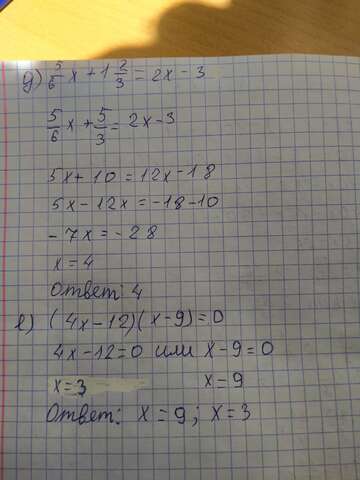 д) 5/6 x + 1 2/3 = 2x - 3
5/6 x + 5/3 = 2x - 3
5x + 10 = 12x - 18
5x - 12x = -18 - 10
- 7x = - 28
x = 4
Ответ: 4
е) (4x - 12)(x - 9) = 0
4x - 12 = 0 или x - 9 = 0
x = 3 x = 9
Ответ: x = 9; x = 3